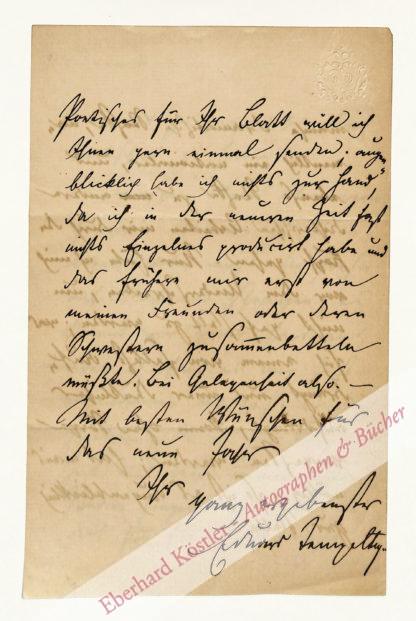 Poetisches für Ihr Blatt will ich
Ihnen gern einmal senden; augen-
blicklich habe ich nichts zur Hand,
da ich in der neueren Zeit fast
nichts Einzelnes producirt habe und
das frühere mir erst von
meinen Freunden oder deren
Schwestern zusammenbetteln
müßte. Bei Gelegenheit also. —
Mit besten Wünschen für
das neue Jahr
Ihr
ganz ergebenster
Eduard Tempeltey.
Eberhard Köstler Autographen & Bücher